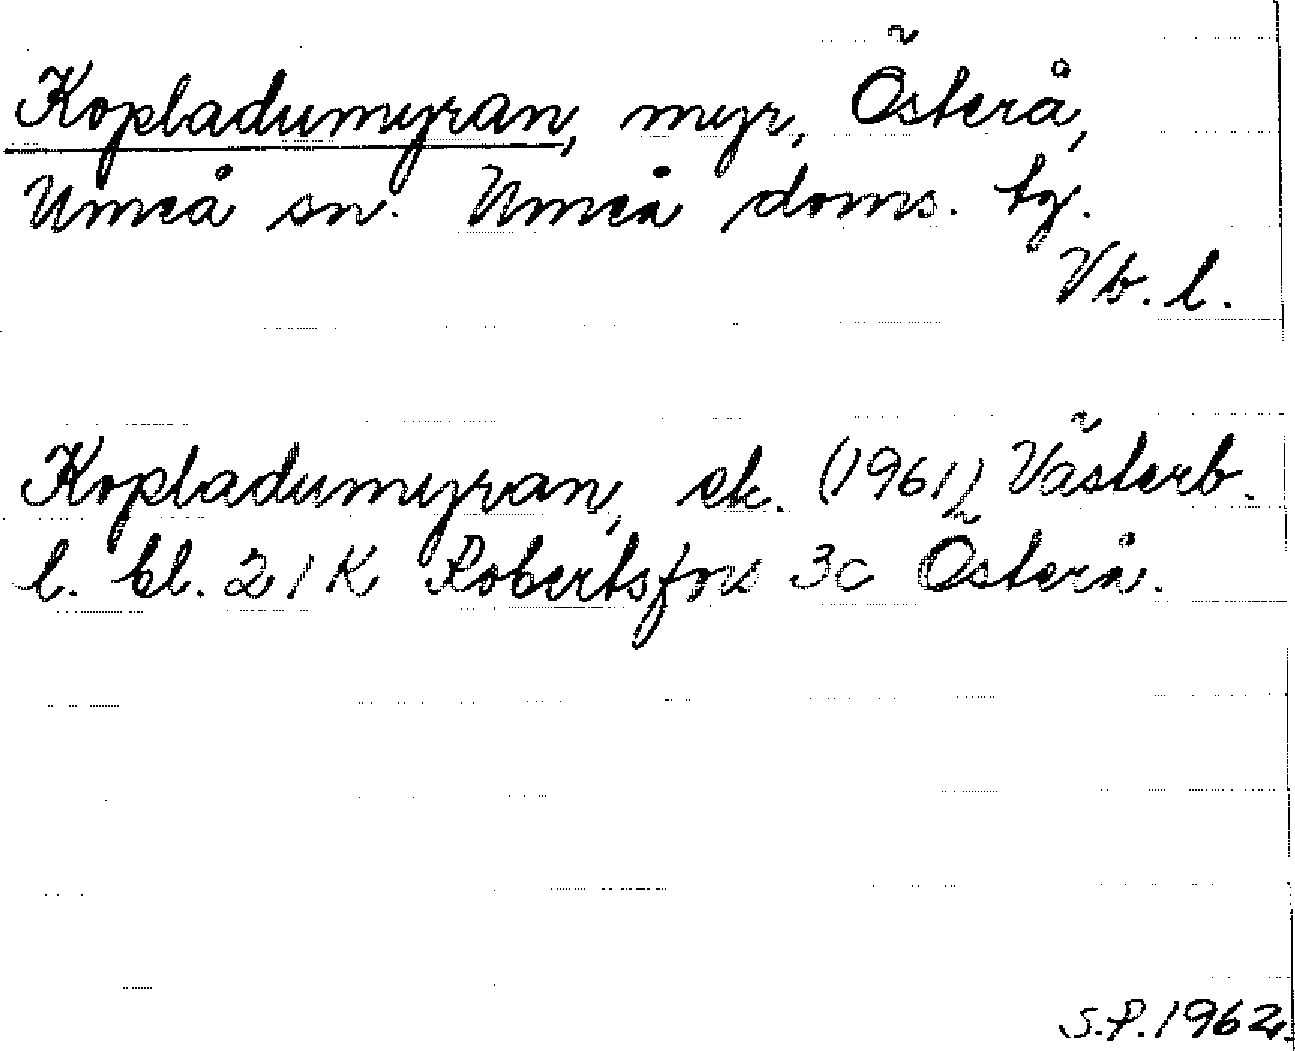 Kopladumyran, myr, Österå,
Umeå sn. Umeå doms. tg.
Vb. l.
Kopladumyran, ek. (1961), Västerb.
l. bl. 21K Robertsfors 3c Österå.
S.P. 1962.